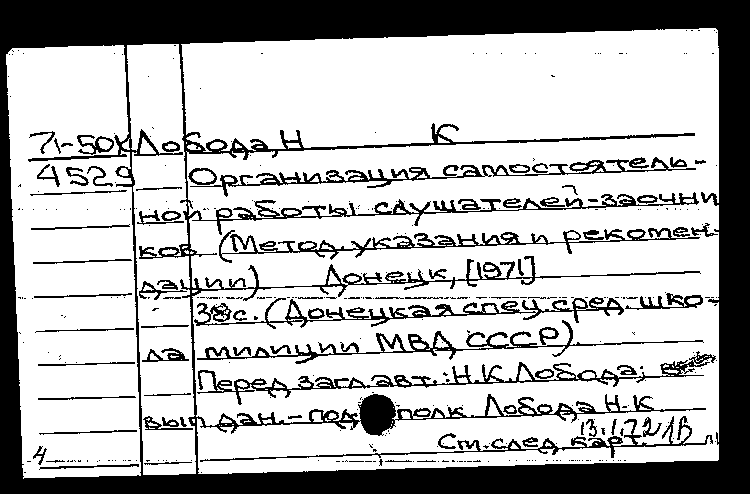 71-50К Лобода, Н К
4529 Организация самостоятель-
ной работы слушателей-заочни
ков. (Метод. указания и рекомен-
дации) Донецк, [1971]
38с. (Донецкая спец. сред. шко-
ла милиции МВД СССР).
Перед загл. авт.: Н.К. Лобода;
вып. дан. – под полк. Лобода Н.К
См. след. карт.
13.1.72
4